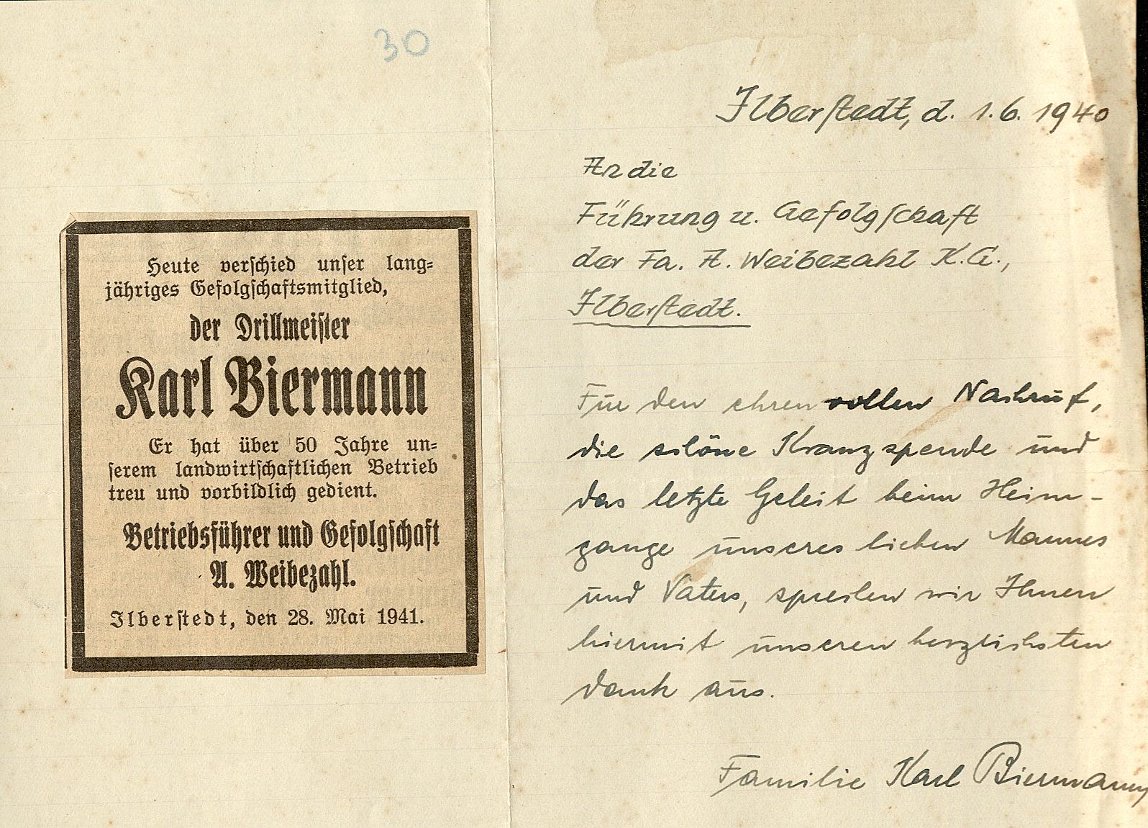 30
Heute verschied unser lang-
jähriges Gefolgschaftsmitglied,
der Drillmeister
Karl Biermann
Er hat über 50 Jahre un-
serem landwirtschaftlichen Betrieb
treu und vorbildlich gedient.
Betriebsführer und Gefolgschaft
A. Weibezahl.
Ilberstedt, den 28. Mai 1941.
Ilberstedt, d. 1.6. 1940
An die
Führung u. Gefolgschaft
der Fa. A. Weibezahl K.G.,
Ilberstedt.
Für den ehrenvollen Nachruf,
die schöne Kranzspende und
das letzte Geleit beim Heim-
gange unseres lieben Mannes
und Vaters, sprechen wir Ihnen
hiermit unseren herzlichsten
Dank aus.
Familie Karl Biermann